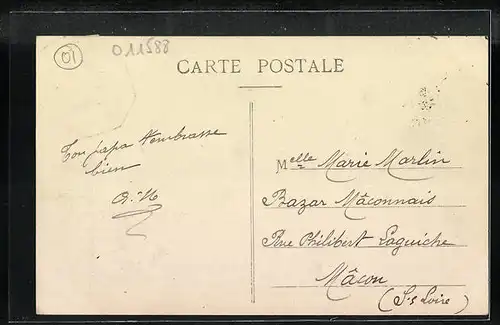 01
011588
CARTE POSTALE
Ton papa t'embrasse
bien
Melle Marie Marlin
Bazar Mâconnais
Rue Philibert Laguiche
Mâcon
(S-s Loire)